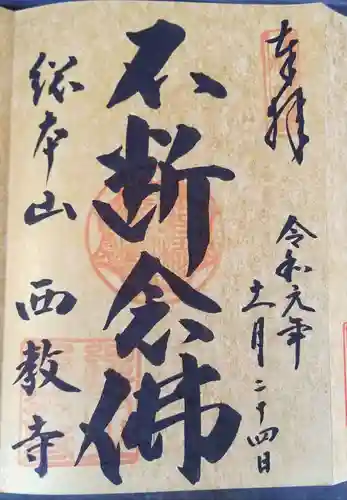 奉拝
令和元年
十一月二十四日
不断念佛
総本山
西教寺